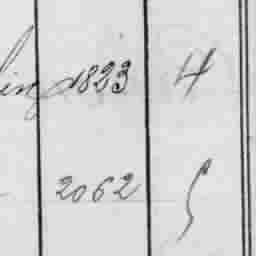 1823 4
2062 5